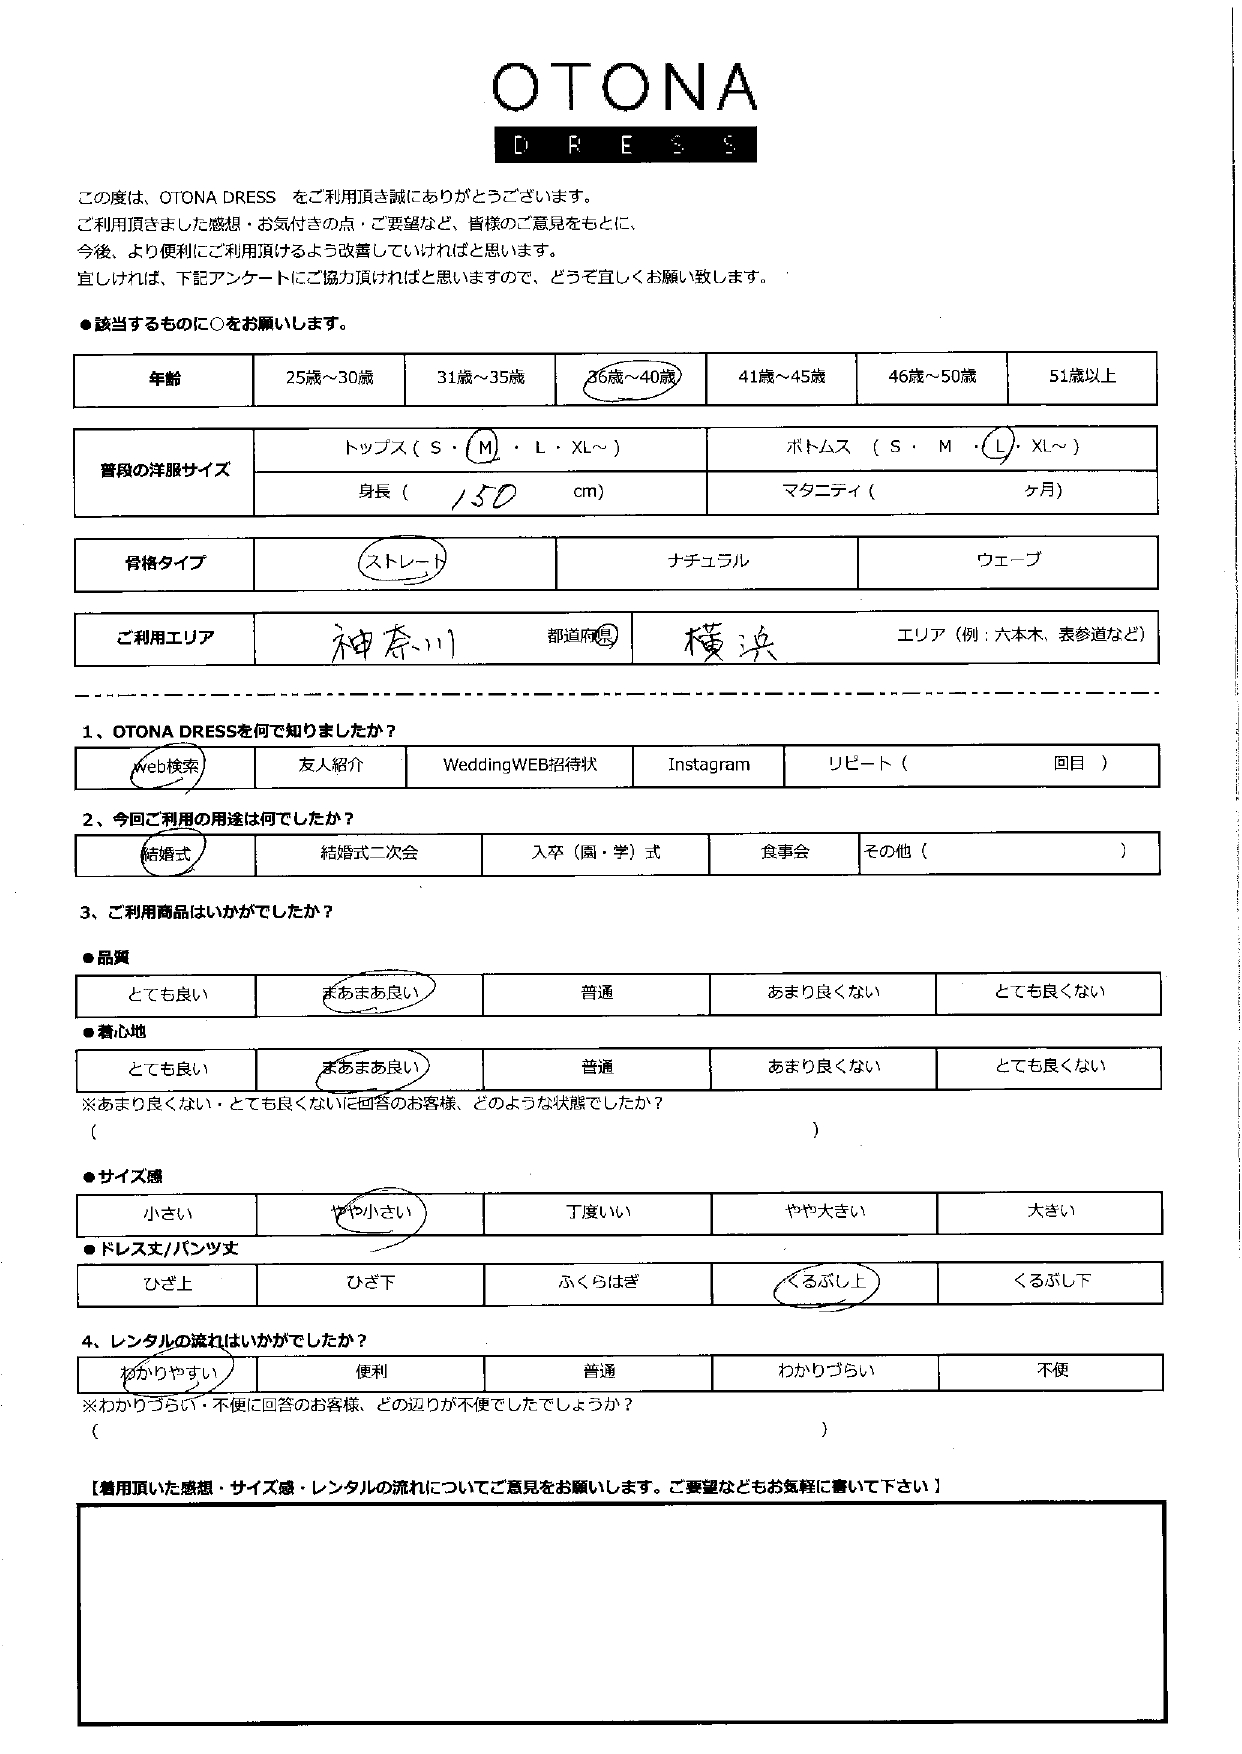 OTONA
DRESS
この度は、OTONA DRESS　をご利用頂き誠にありがとうございます。
ご利用頂きました感想・お気付きの点・ご要望など、皆様のご意見をもとに、
今後、より便利にご利用頂けるよう改善していければと思います。
宜しければ、下記アンケートにご協力頂ければと思いますので、どうぞ宜しくお願い致します。
●該当するものに○をお願いします。
年齢 25歳～30歳 31歳～35歳 36歳～40歳 41歳～45歳 46歳～50歳 51歳以上
普段の洋服サイズ
トップス ( S ・ M ・ L ・ XL～ ) ボトムス ( S ・ M ・ L ・ XL～ )
身長 ( 150 cm) マタニティ ( ヶ月)
骨格タイプ ストレート ナチュラル ウェーブ
ご利用エリア 神奈川 都道府県 横浜 エリア（例：六本木、表参道など）
1、OTONA DRESSを何で知りましたか？
web検索 友人紹介 WeddingWEB招待状 Instagram リピート ( 回目 )
2、今回ご利用の用途は何でしたか？
結婚式 結婚式二次会 入卒（園・学）式 食事会 その他 ( )
3、ご利用商品はいかがでしたか？
●品質
とても良い まあまあ良い 普通 あまり良くない とても良くない
●着心地
とても良い まあまあ良い 普通 あまり良くない とても良くない
※あまり良くない・とても良くないに回答のお客様、どのような状態でしたか？
( )
●サイズ感
小さい やや小さい 丁度いい やや大きい 大きい
●ドレス丈/パンツ丈
ひざ上 ひざ下 ふくらはぎ くるぶし上 くるぶし下
4、レンタルの流れはいかがでしたか？
わかりやすい 便利 普通 わかりづらい 不便
※わかりづらい・不便に回答のお客様、どの辺りが不便でしたでしょうか？
( )
【着用頂いた感想・サイズ感・レンタルの流れについてご意見をお願いします。ご要望などもお気軽に書いて下さい】